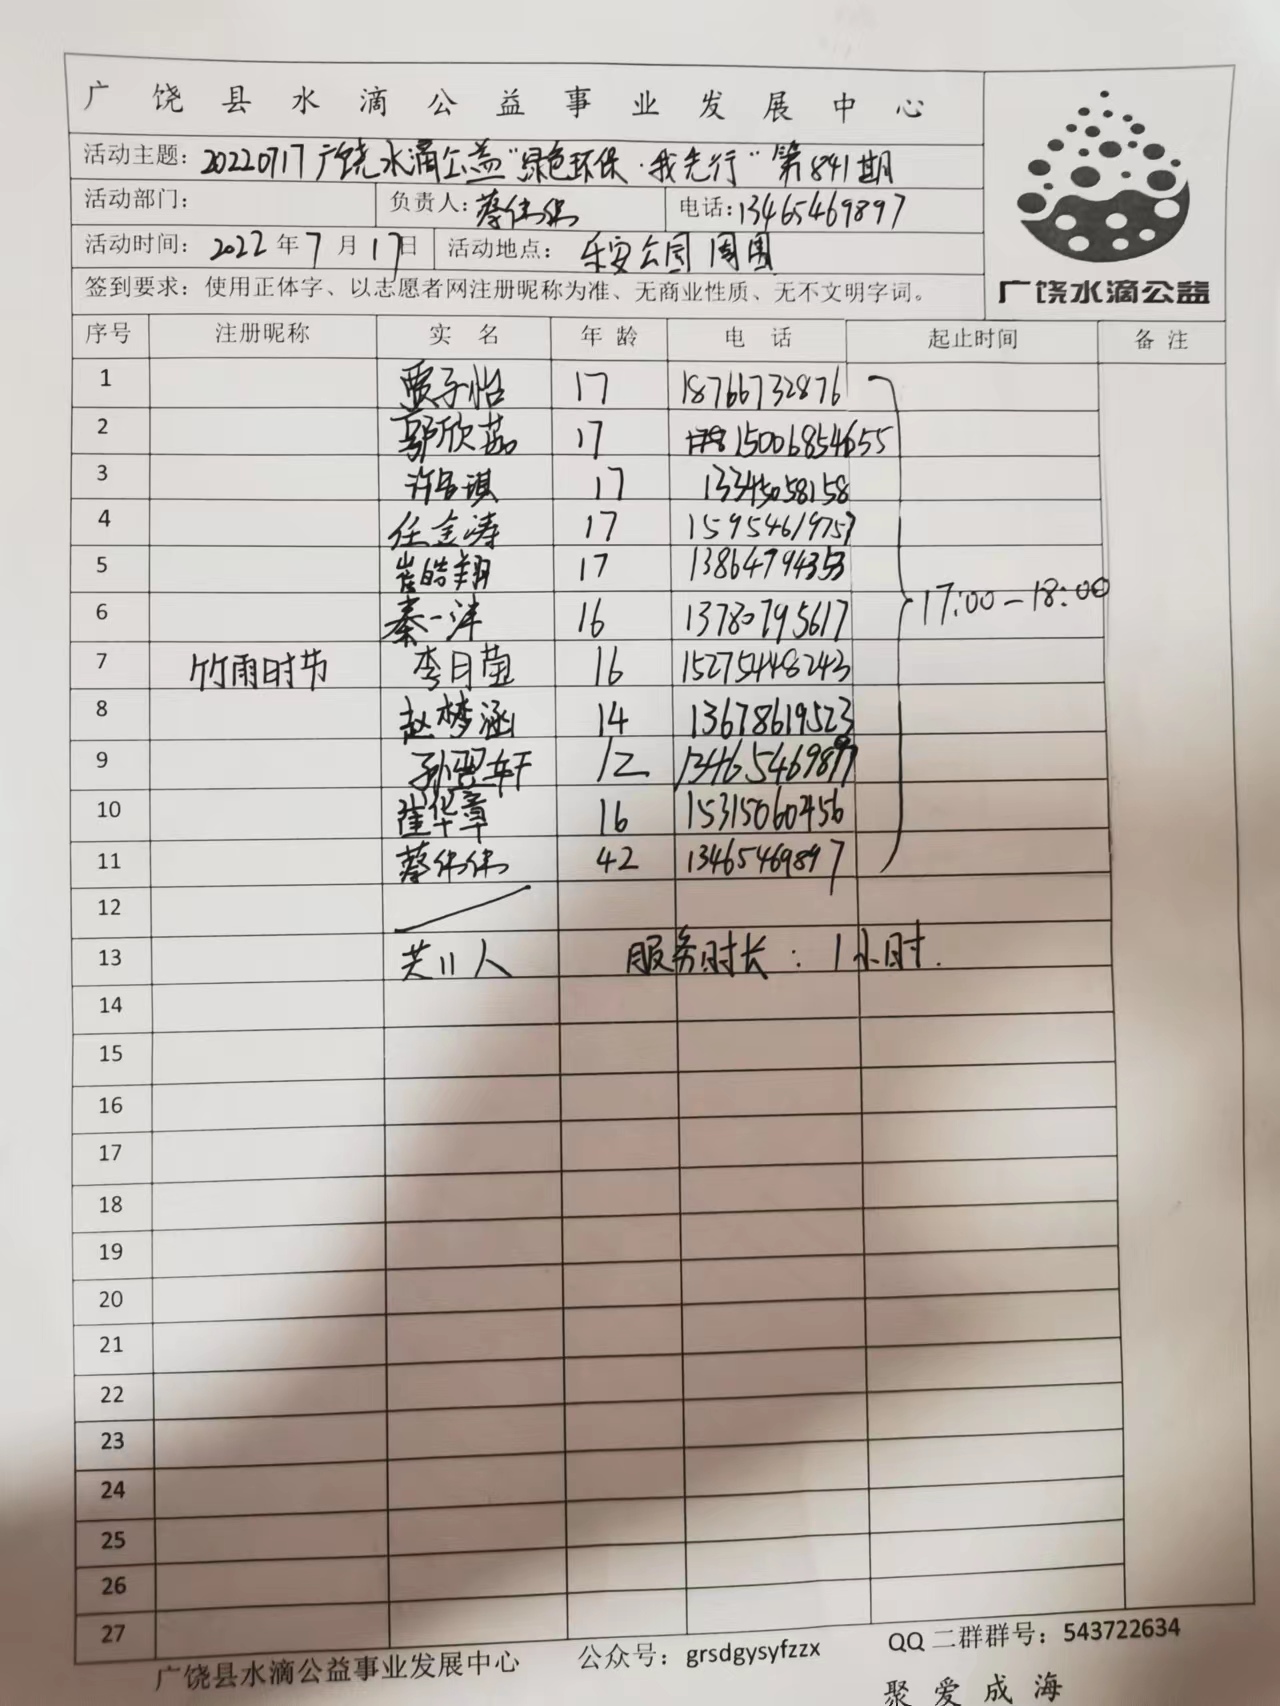 广饶县水滴公益事业发展中心
活动主题：20220717广饶水滴公益"绿色环保·我先行"第841期
活动部门： 负责人：蔡伟伟 电话：13465469897
活动时间：2022年7月17日 活动地点：乐安公园周围
签到要求：使用正体字、以志愿者网注册昵称为准、无商业性质、无不文明字词。
广饶水滴公益
序号 注册昵称 实名 年龄 电话 起止时间 备注
1 贾子怡 17 18766732876
2 鄢欣茹 17 15006854655
3 17 13345058158
4 任金涛 17 15954619757
5 崔皓翔 17 13864794353
6 秦一沣 16 13780795617
17:00-18:00
7 竹雨时节 李日莹 16 15275448243
8 赵梦涵 14 13678619523
9 孙翌轩 12 13465469897
10 崔华章 16 15315060456
11 蔡伟伟 42 13465469897
12
13 共11人 服务时长：1小时.
14
15
16
17
18
19
20
21
22
23
24
25
26
27
广饶县水滴公益事业发展中心 公众号：grsdgysyfzzx QQ二群群号：543722634
聚爱成海